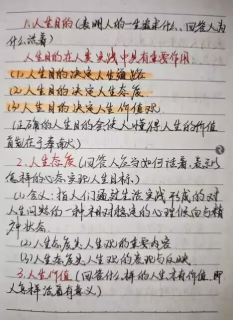 1.人生目的(表明人的一生追求什么,回答人为
什么活着)
人生目的在人类实践中具有重要作用
(1)人生目的决定人生道路
(2)人生目的决定人生态度
(3)人生目的决定人生价值观
(正确的人生目的会使人懂得人生的价值
首先在于奉献)
2.人生态度(回答人应当如何活着,表示以
怎样的心态实现人生目标)
(1)含义:指人们通过生活实践形成的对
人生问题的一种相对稳定的心理倾向与精
神状态
(2)人生态度是人生观的重要内容
(3)人生态度是人生观的表现与反映
3.人生价值(回答什么样的人生才有价值,即
人怎样活着有意义)